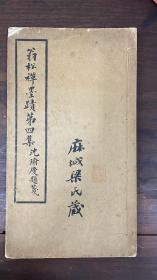 翁松禅墨蹟第四集 沈瑜慶題簽
麻城梁氏藏